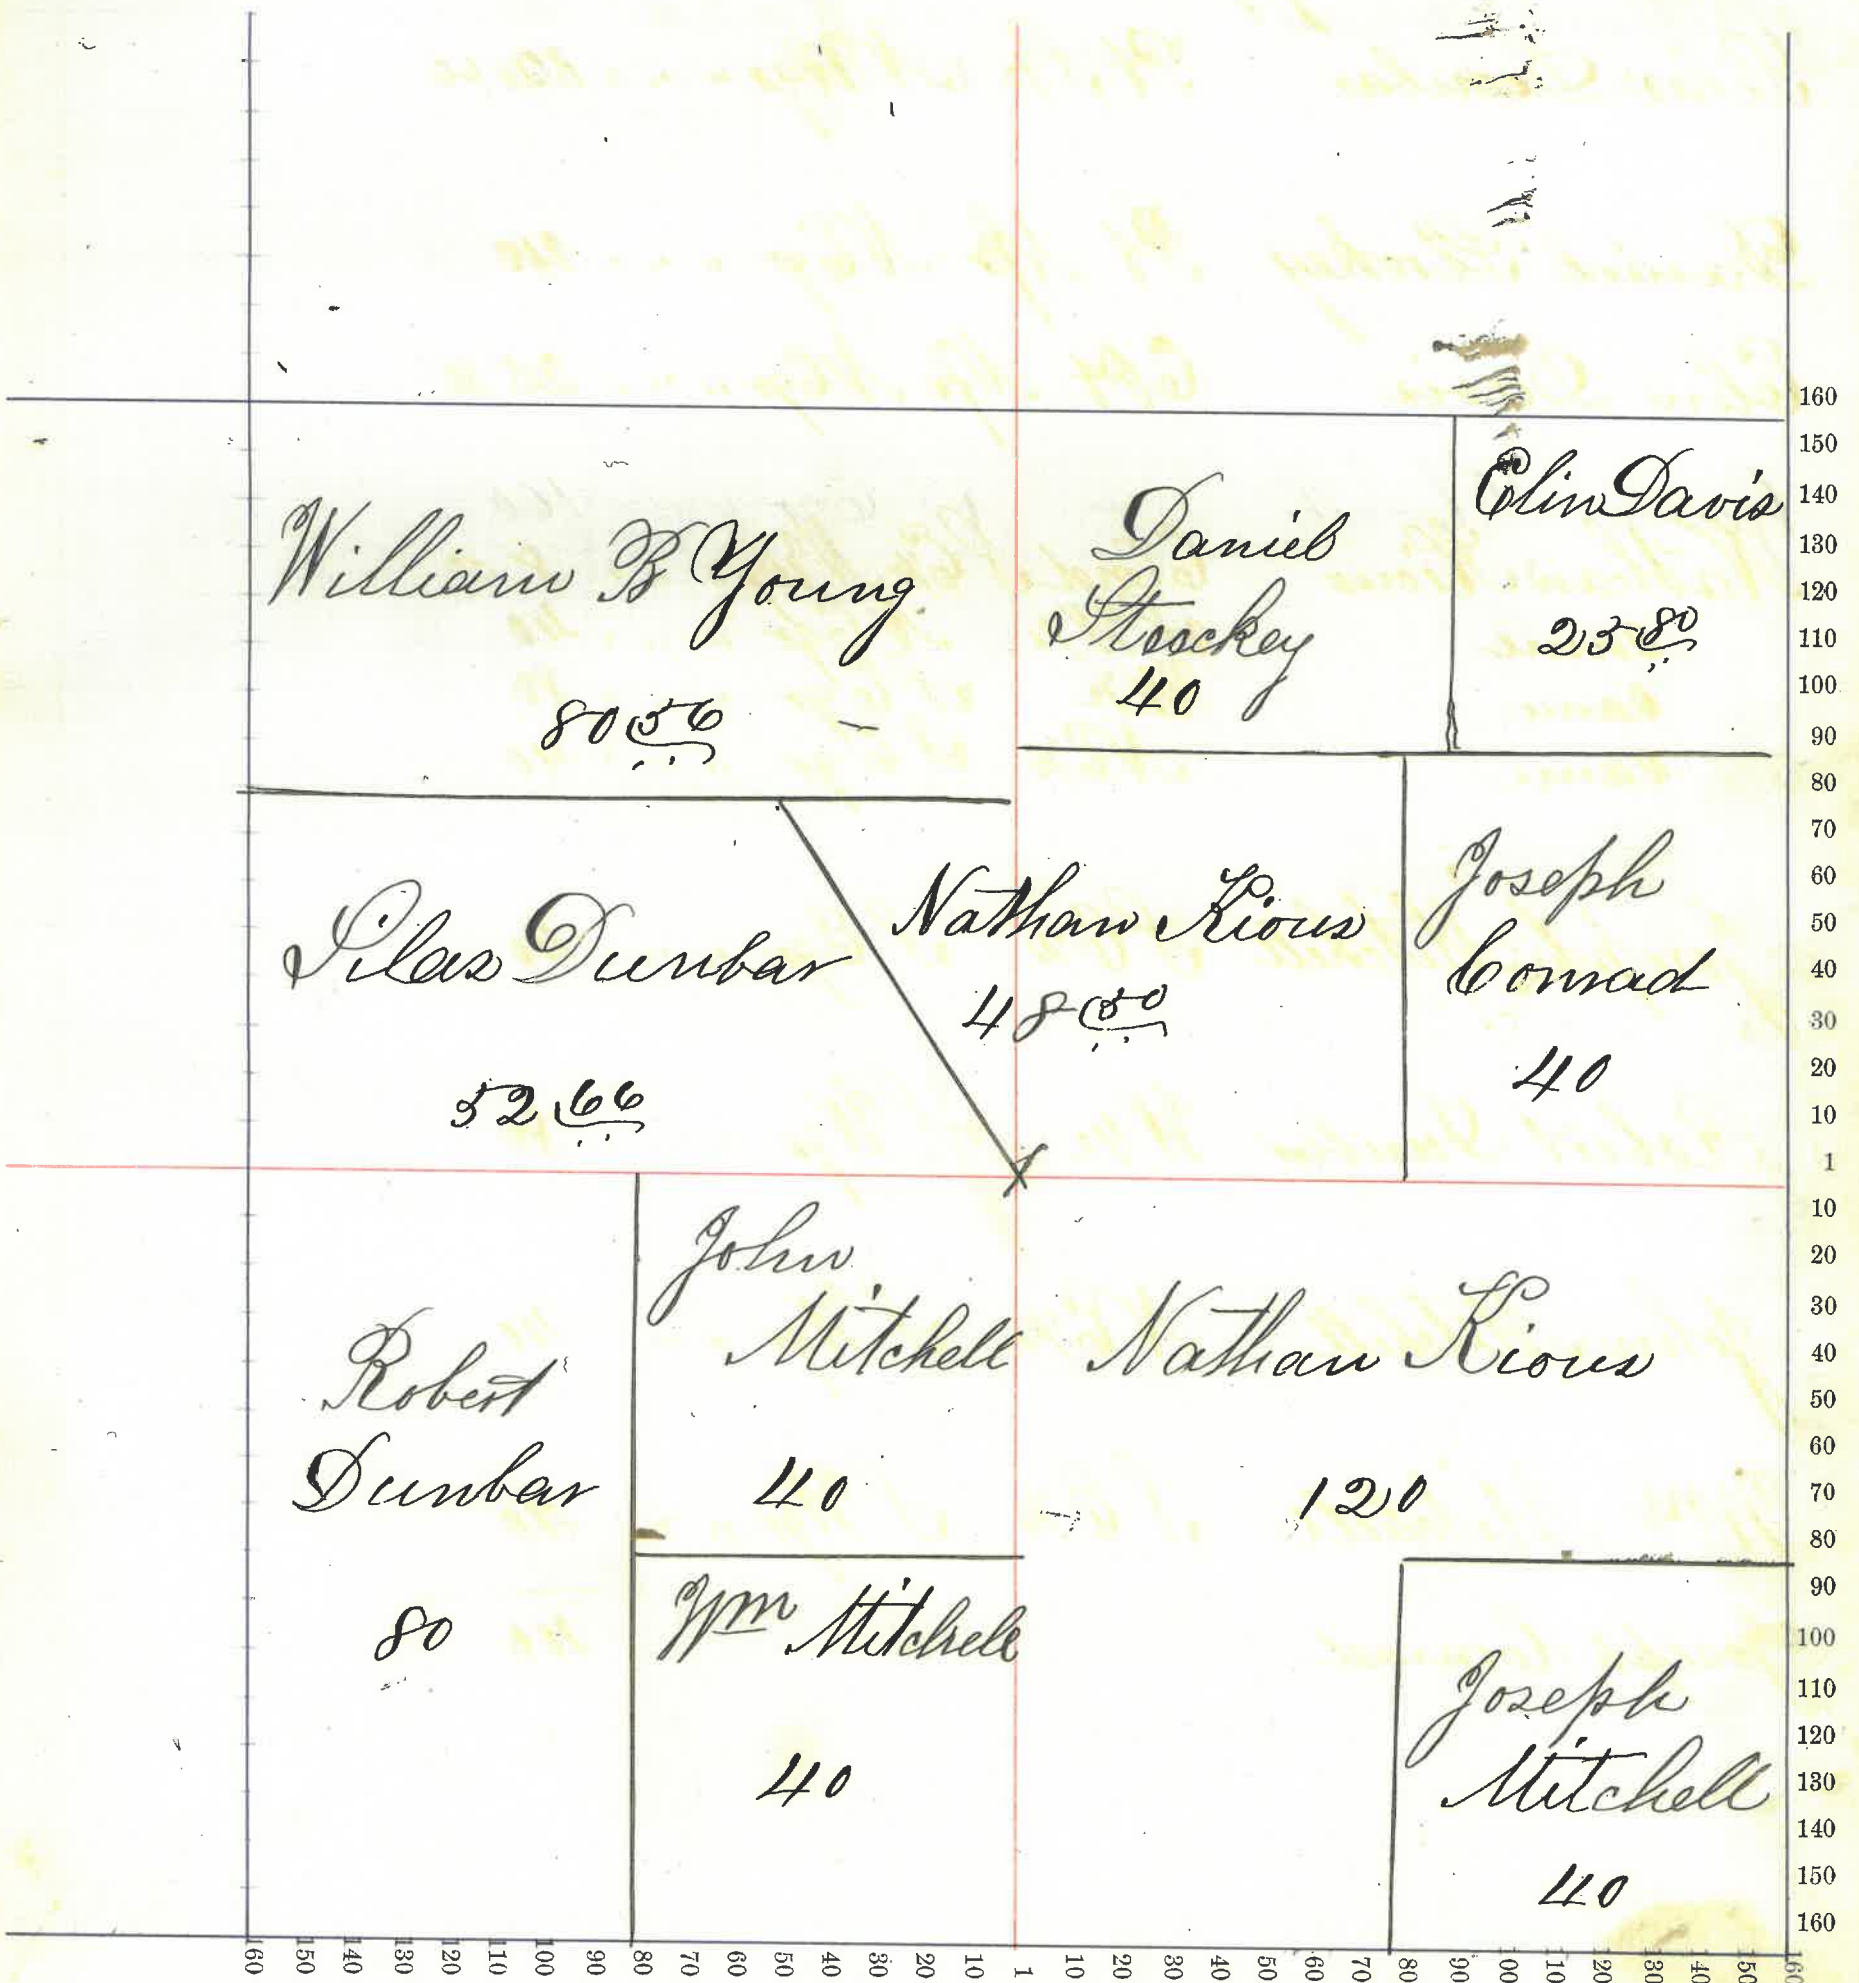 William B Young
80 56
Daniel
40
Elin Davis
25 80
Silas Dunbar
52 66
Nathan Kious
48 50
Joseph
Conrad
40
Robert
Dunbar
80
John
Mitchell
40
Nathan Kious
120
Wm Mitchell
40
Joseph
Mitchell
40
160
150
140
130
120
110
100
90
80
70
60
50
40
30
20
10
1
10
20
30
40
50
60
70
80
90
100
110
120
130
140
150
160
160 150 140 130 120 110 100 90 80 70 60 50 40 30 20 10 1 10 20 30 40 50 60 70 80 90 100 110 120 130 140 150 160